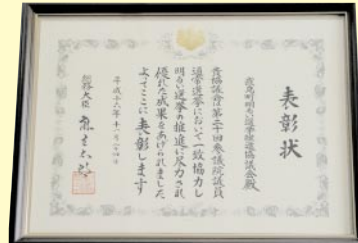 表彰状
町明るい選挙推進協議会殿
貴協議会は第二十回参議院議員
通常選挙において一致協力し
明るい選挙の推進に尽力され
優れた成果をあげられました
よってここに表彰します
平成十六年十一月二十四日
総務大臣 麻生太郎